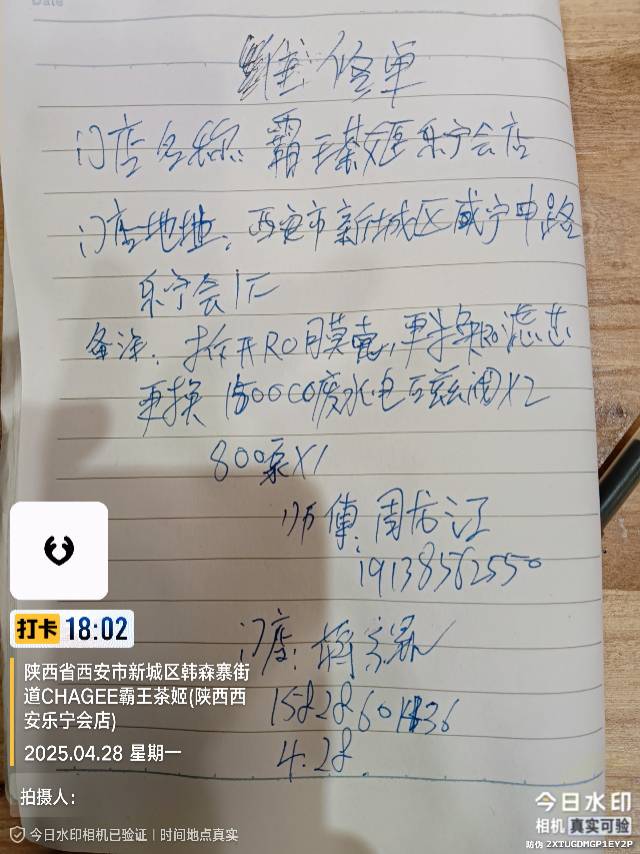 Date
维修单
门店名称：霸王茶姬乐宁会店
门店地址：西安市新城区咸宁中路
乐宁会1F
备注：拆开RO膜壳，更换RO滤芯
更换1500CC废水电磁阀X2
800泵X1
师傅：周龙江
19138562550
门店：蒋
4.28
打卡 18:02
陕西省西安市新城区韩森寨街
道CHAGEE霸王茶姬(陕西西
安乐宁会店)
2025.04.28 星期一
拍摄人：
今日水印相机已验证 | 时间地点真实
今日水印
相机 真实可验
防伪 2XTUGDMGP1EY2P